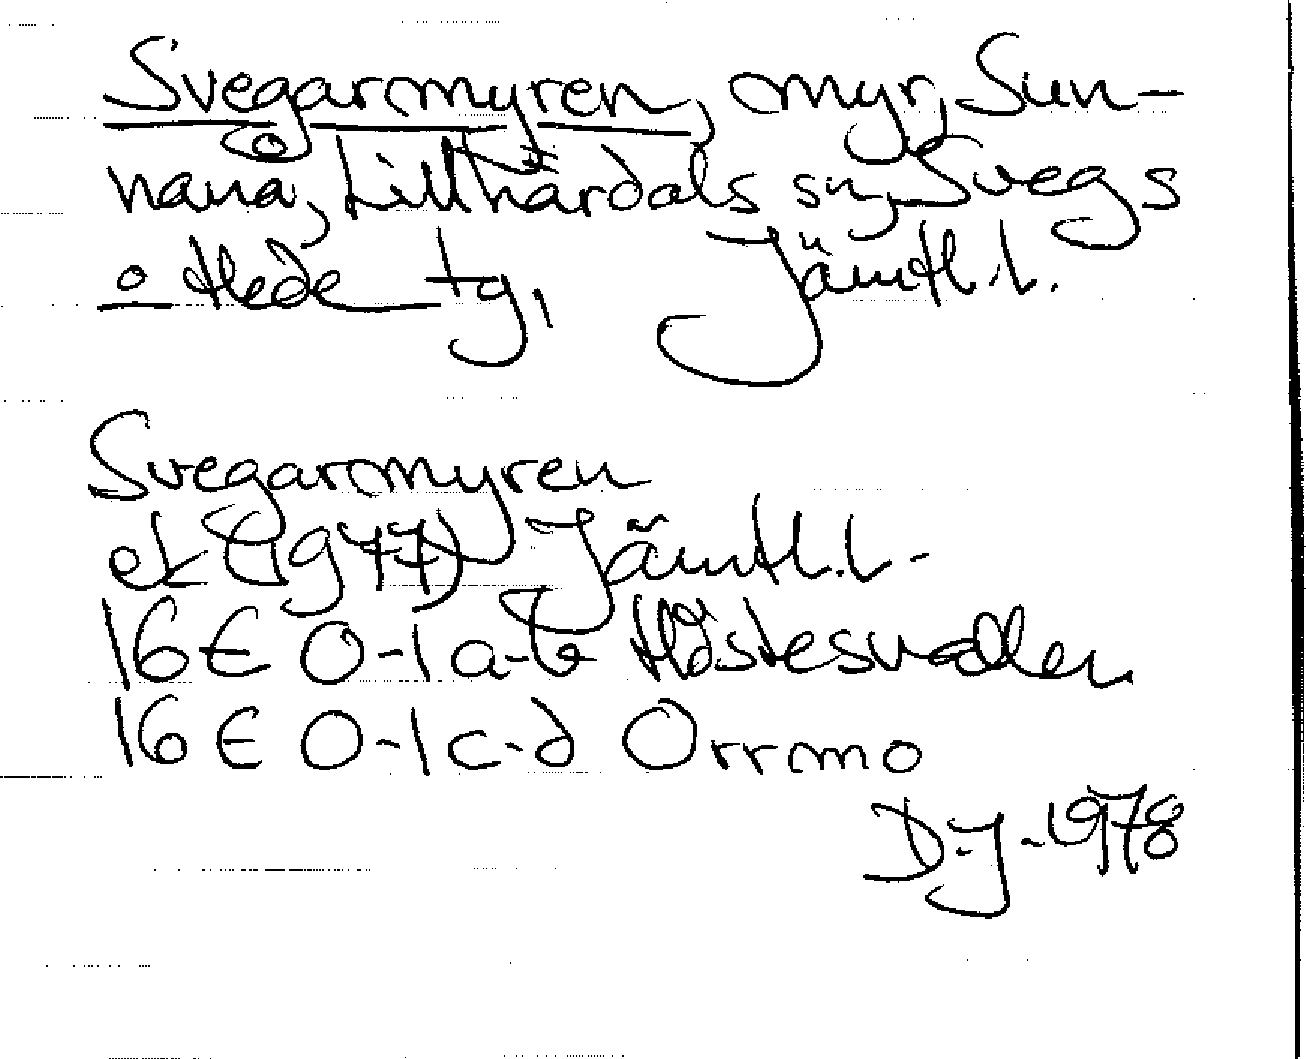 Svegarmyren, myr, Sun-
nanå, Lillhärdals sn, Svegs
o Hede tg, Jämtl.l.
Svegarmyren
ek (1977) Jämtl.l.
16E 0-1a-b Höstesvallen
16E 0-1c-d Orrmo
D.J. -1978